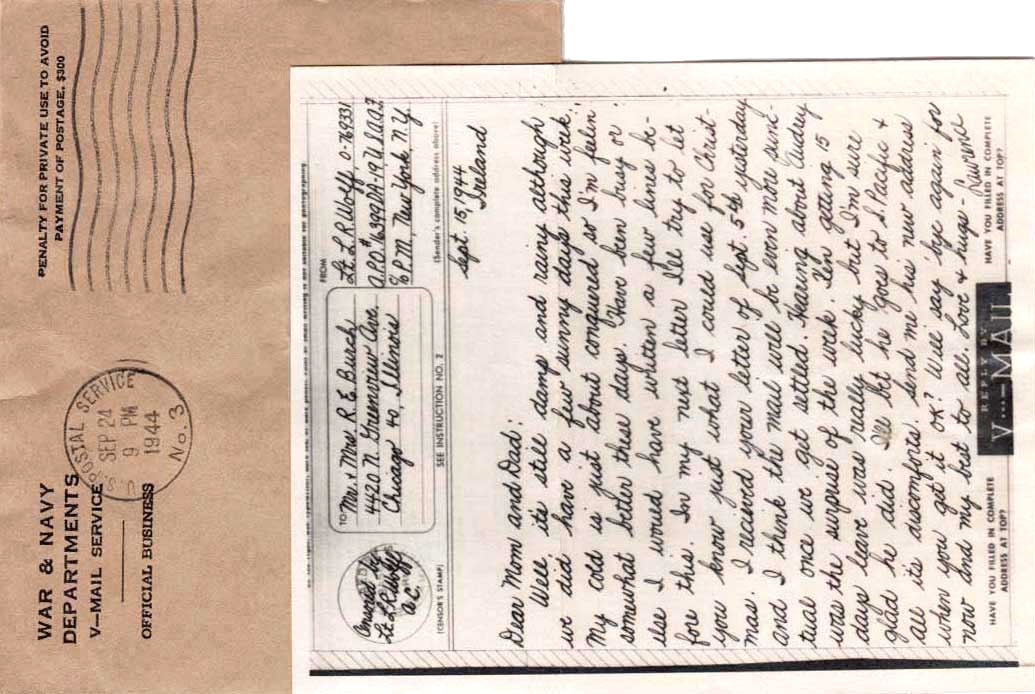 WAR & NAVY
DEPARTMENTS
V—MAIL SERVICE
OFFICIAL BUSINESS
U.S. POSTAL SERVICE
SEP 24
9 PM
1944
No. 3
PENALTY FOR PRIVATE USE TO AVOID
PAYMENT OF POSTAGE, $300
Censored by
Lt L R Wolff
A.C.
(CENSOR'S STAMP)
TO
Mr. & Mrs. R. E. Burch
4420 N. Greenview Ave.
Chicago 40, Illinois
SEE INSTRUCTION NO. 2
FROM
Lt. L R Wolff O-76331
A.P.O. #16399 DA-19 U.S.A.A.F.
% P.M., New York, N.Y.
(Sender's complete address above)
Sept. 15, 1944
Ireland
Dear Mom and Dad:
Well it's still damp and rainy although
we did have a few sunny days this week.
My cold is just about conquered so I'm feelin
somewhat better these days. Have been busy or
else I would have written a few lines be-
fore this. In my next letter I'll try to let
you know just what I could use for Christ-
mas. I received your letter of Sept. 5th yesterday
and I think the mail will be even more punc-
tual once we get settled. Hearing about Audrey
was the surprise of the week. Ken getting 15
days leave was really lucky but I'm sure
glad he did. I'll bet he goes to S. Pacific &
all it's discomforts. Send me his new address
when you get it OK? Will say bye again for
now and my best to all. Love & hugs - Lawrence
HAVE YOU FILLED IN COMPLETE
ADDRESS AT TOP?
REPLY BY
V...—MAIL
HAVE YOU FILLED IN COMPLETE
ADDRESS AT TOP?